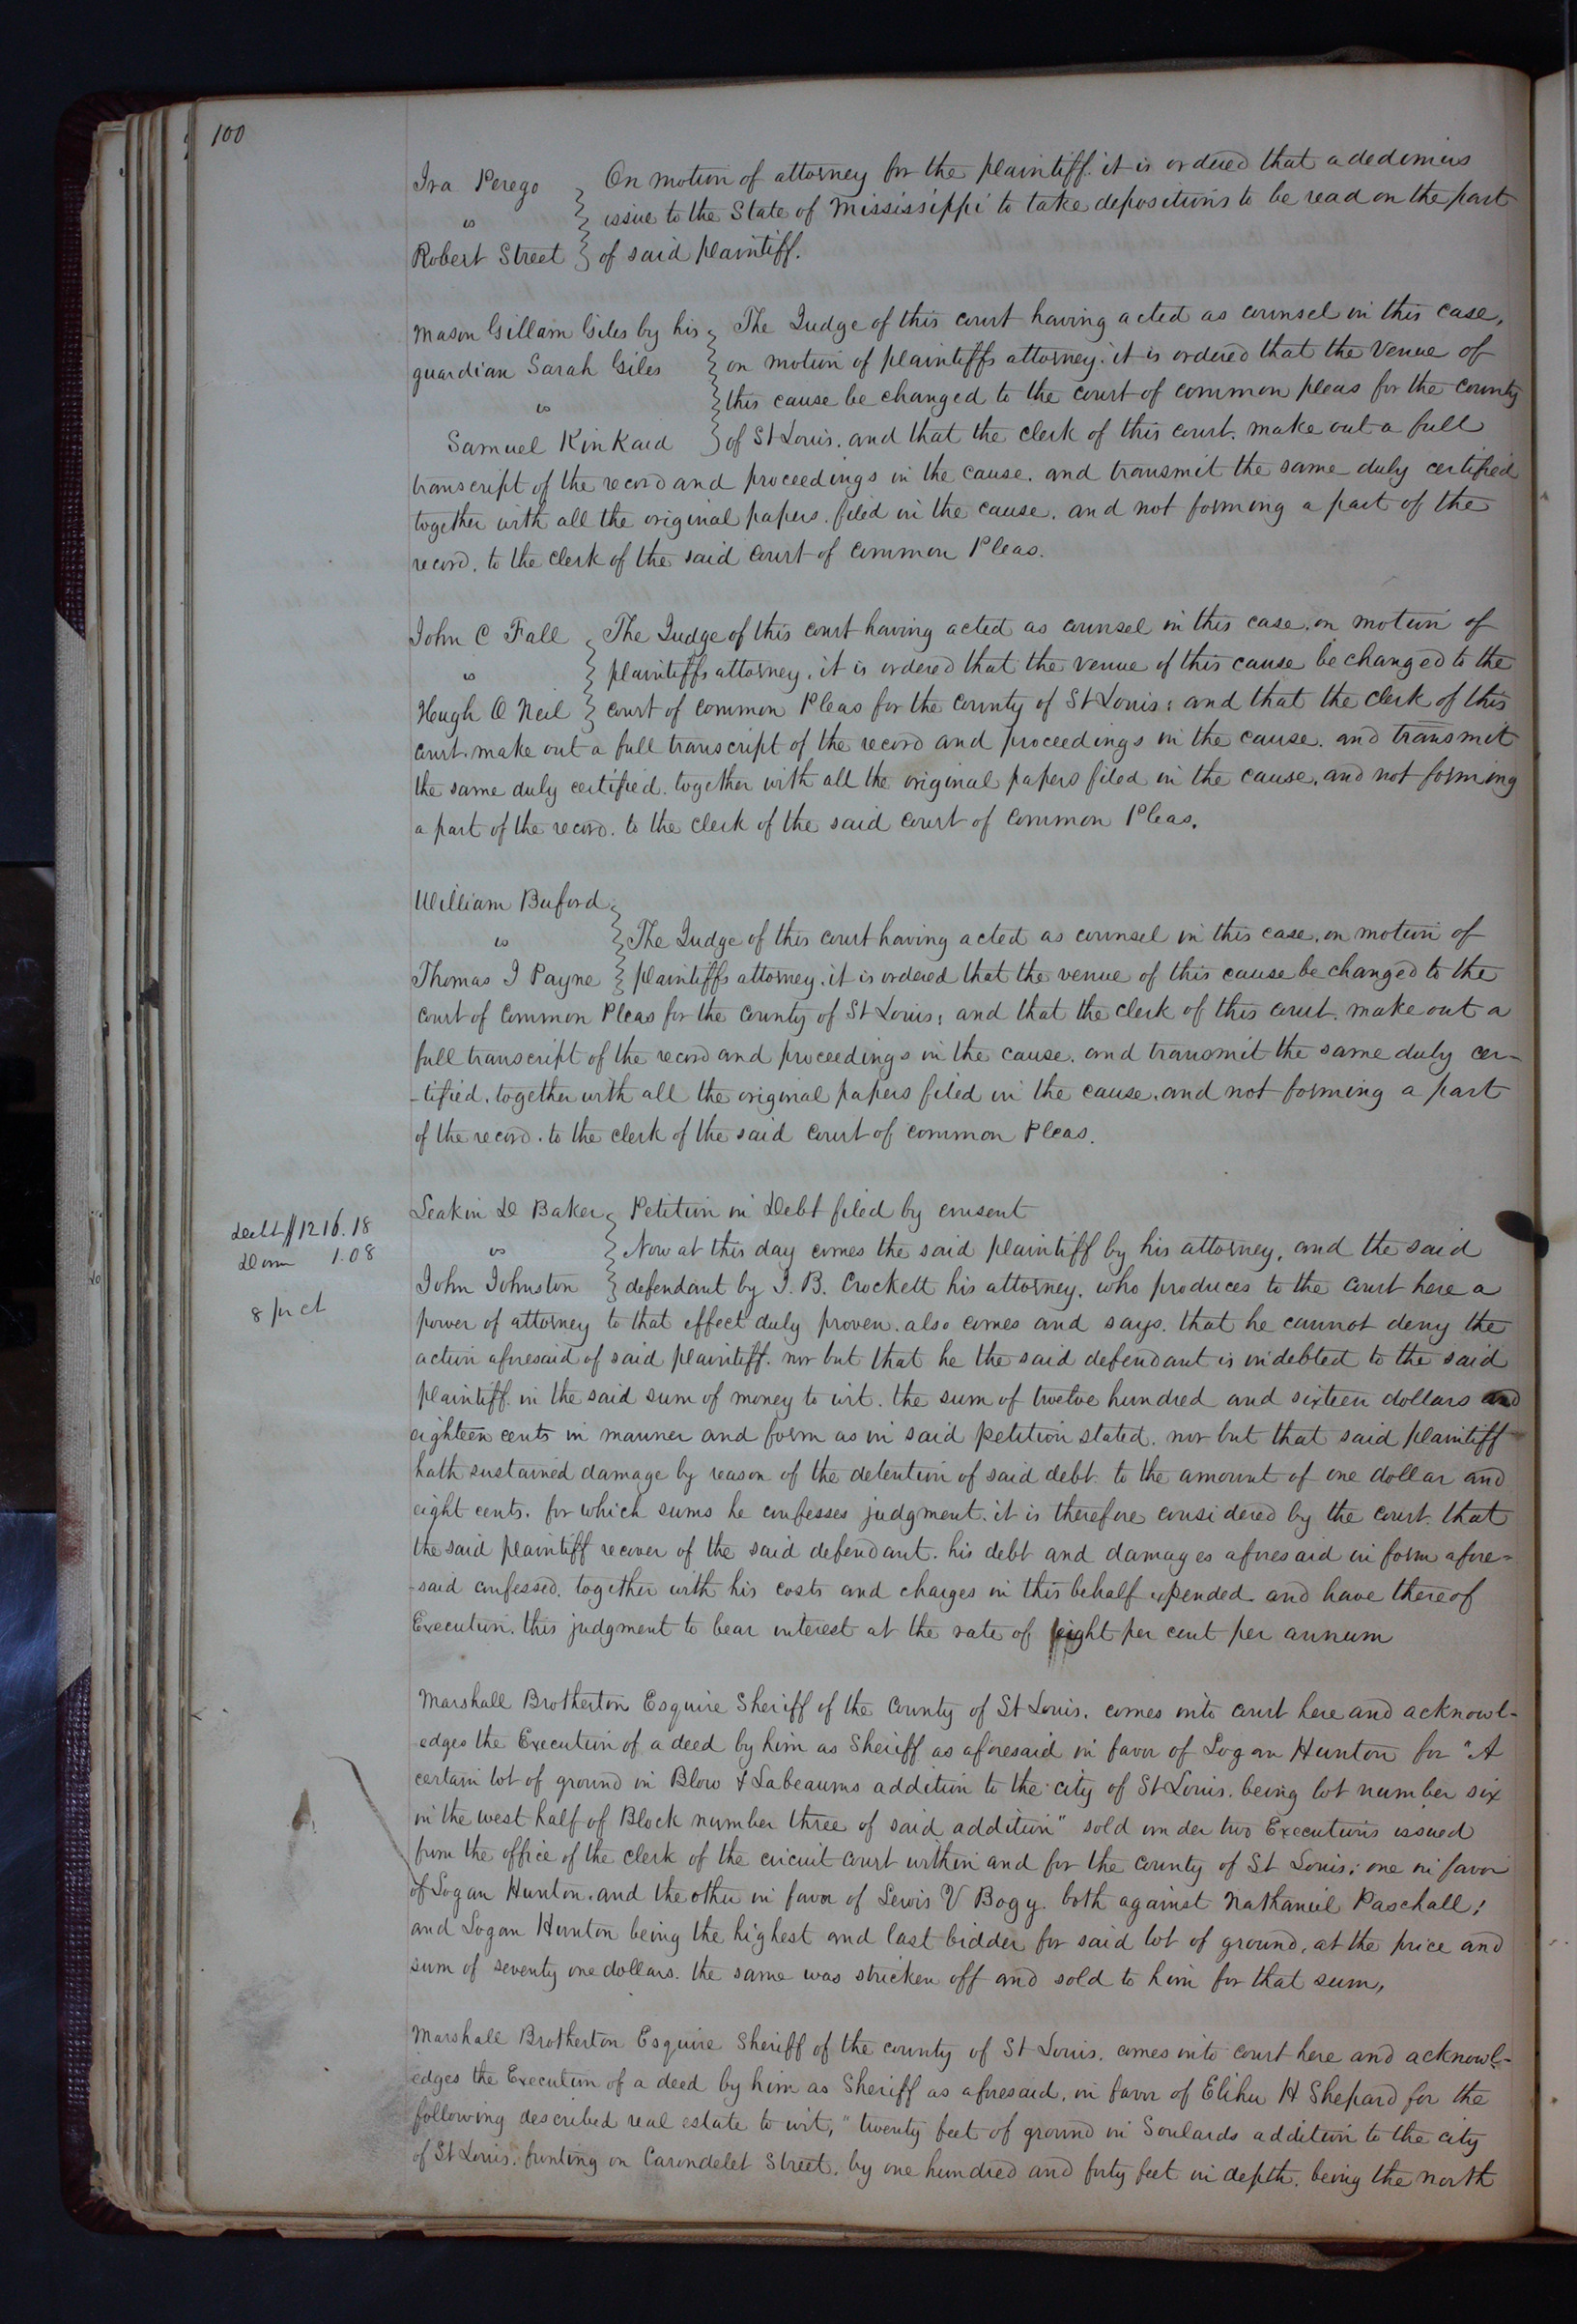 100
Ira Perego } On motion of attorney for the plaintiff. it is ordered that a dedimus
vs } issue to the State of Mississippi to take depositions to be read on the part
Robert Street } of said plaintiff.
Mason Gillam Giles by his } The Judge of this court having acted as counsel in this case,
guardian Sarah Giles } on motion of plaintiffs attorney. it is ordered that the Venue of
vs } this cause be changed to the court of common pleas for the county
Samuel Kinkaid } of St Louis. and that the clerk of this court. make out a full
transcript of the record and proceedings in the cause. and transmit the same duly certified
together with all the original papers. filed in the cause. and not forming a part of the
record. to the clerk of the said Court of Common Pleas.
John C Fall } The Judge of this court having acted as counsel in this case. on motion of
vs } plaintiffs attorney. it is ordered that the venue of this cause be changed to the
Hugh O Neil } court of common Pleas for the County of St Louis: and that the clerk of this
court. make out a full transcript of the record and proceedings in the cause. and transmit
the same duly certified. together with all the original papers filed in the cause. and not forming
a part of the record. to the clerk of the said court of Common Pleas.
William Buford }
vs } The Judge of this court having acted as counsel in this case. on motion of
Thomas J Payne } plaintiffs attorney. it is ordered that the venue of this cause be changed to the
court of Common Pleas for the County of St Louis; and that the clerk of this court. make out a
full transcript of the record and proceedings in the cause. and transmit the same duly cer-
-tified. together with all the original papers filed in the cause. and not forming a part
of the record. to the clerk of the said court of common Pleas.
Leakin D Baker } Petition in Debt filed by consent
Debt $1216.18
vs } Now at this day comes the said plaintiff by his attorney, and the said
Dam 1.08
John Johnston } defendant by J. B. Crockett his attorney. who produces to the Court here a
8 pr ct
power of attorney to that effect duly proven. also comes and says. that he cannot deny the
action aforesaid of said plaintiff. nor but that he the said defendant is indebted to the said
plaintiff in the said sum of money to wit. the sum of twelve hundred and sixteen dollars and
eighteen cents in manner and form as in said petition stated. nor but that said plaintiff
hath sustained damage by reason of the detention of said debt. to the amount of one dollar and
eight cents. for which sums he confesses judgment. it is therefore considered by the court. that
the said plaintiff recover of the said defendant. his debt and damages aforesaid in form afore-
-said confessed. together with his costs and charges in this behalf expended. and have thereof
Execution. this judgment to bear interest at the rate of eight per cent per annum
Marshall Brotherton Esquire Sheriff of the County of St Louis. comes into court here and acknowl-
edges the Execution of a deed by him as Sheriff as aforesaid in favor of Logan Hunton for "A
certain lot of ground in Blow & Labeaums addition to the city of St Louis. being lot number six
in the west half of Block number three of said addition" sold under two Executions issued
from the office of the clerk of the circuit court within and for the County of St Louis; one in favor
of Logan Hunton. and the other in favor of Lewis V Bogy. both against Nathaniel Paschall;
and Logan Hunton being the highest and last bidder for said lot of ground, at the price and
sum of seventy one dollars. the same was stricken off and sold to him for that sum,
Marshall Brotherton Esquire Sheriff of the county of St Louis. comes into court here and acknowl-
edges the Execution of a deed by him as Sheriff as aforesaid. in favor of Elihu H Shepard for the
following described real estate to wit, "twenty feet of ground in Soulards addition to the city
of St Louis. fronting on Carondelet Street. by one hundred and forty feet in depth. being the north